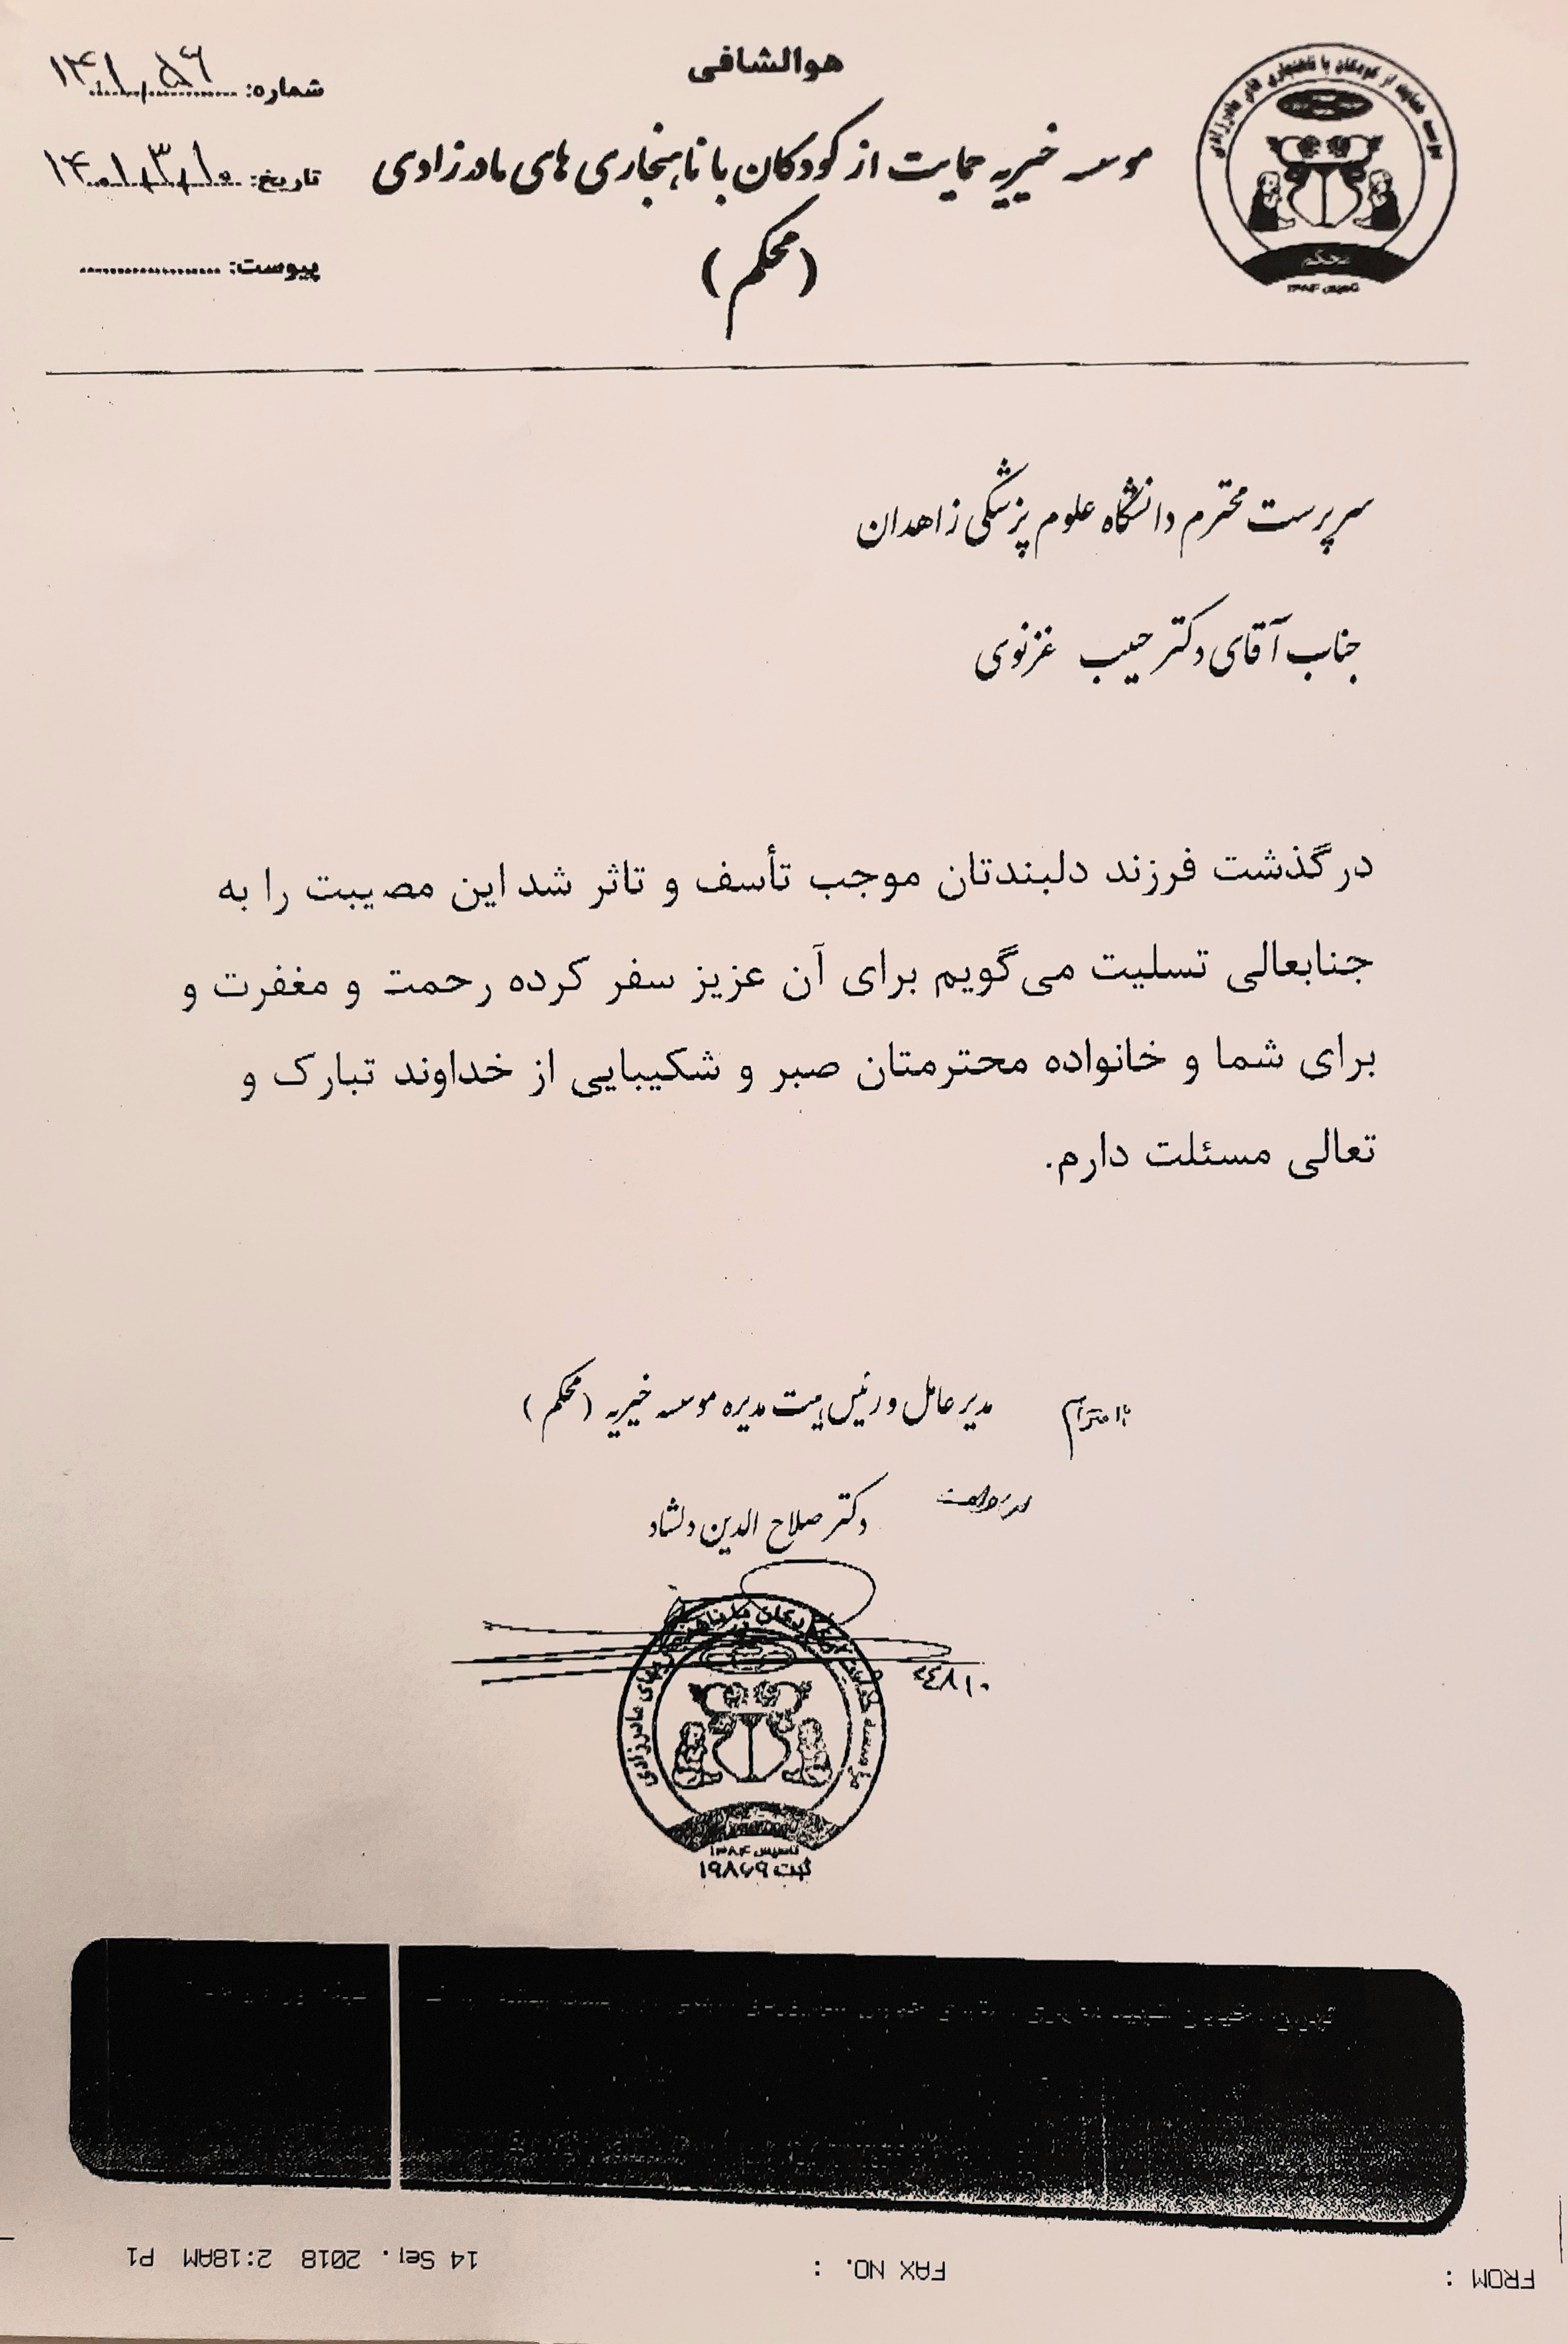 هوالشافی
موسسه خیریه حمایت از کودکان با ناهنجاری های مادرزادی
(محکم)
موسسه حمایت از کودکان با ناهنجاری های مادرزادی
محکم
تاسیس ۱۳۸۴
شماره: ۱۴۰۱٫۵۶
تاریخ: ۱۴۰۱٫۳٫۱۰
پیوست:
سرپرست محترم دانشگاه علوم پزشکی زاهدان
جناب آقای دکتر حبیب غزنوی
درگذشت فرزند دلبندتان موجب تأسف و تاثر شد این مصیبت را به
جنابعالی تسلیت می‌گویم برای آن عزیز سفر کرده رحمت و مغفرت و
برای شما و خانواده محترمتان صبر و شکیبایی از خداوند تبارک و
تعالی مسئلت دارم.
با احترام
مدیر عامل و رئیس هیت مدیره موسسه خیریه (محکم)
دکتر صلاح الدین دلشاد
تاسیس ۱۳۸۴
ثبت ۱۹۸۶۹
FROM : FAX NO. : 14 Sep. 2018 2:18AM P1